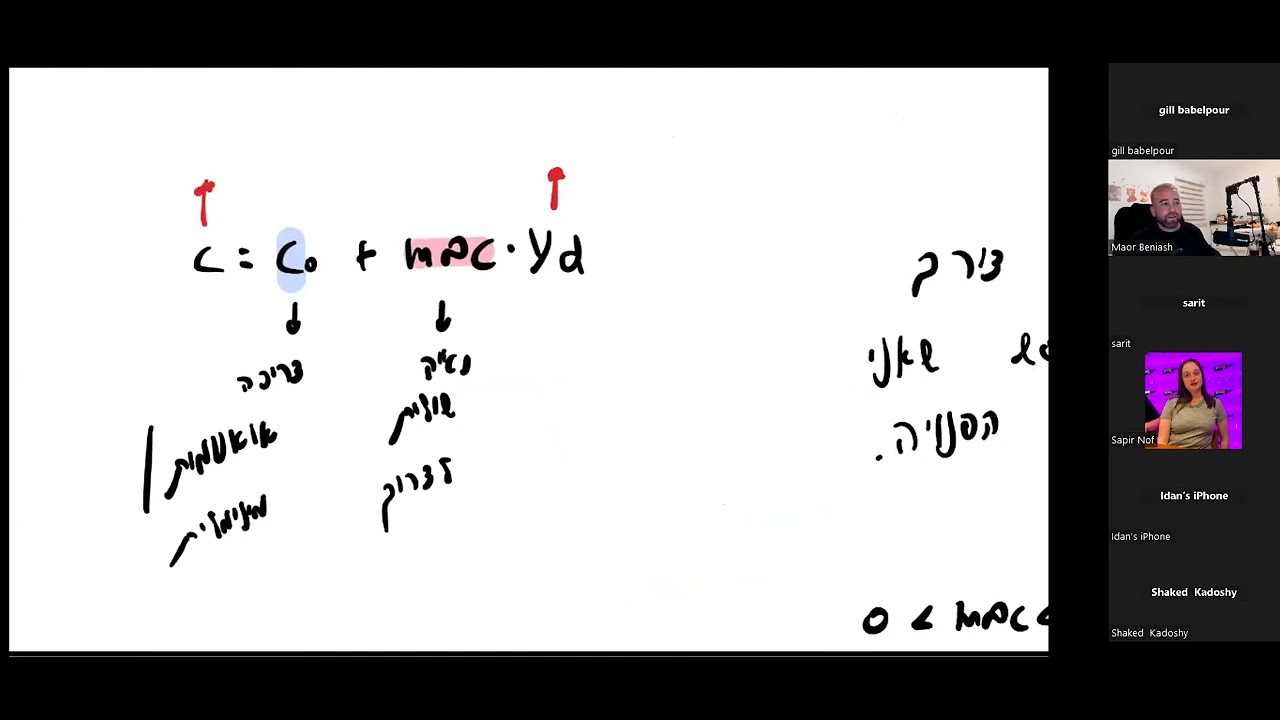 C = C₀ + mpc · Yd
צריכה
אוטונומית
מינימלית
נטיה
שולית
לצרוך
צורך
שאני
הפנויה.
0 < mpc <
gill babelpour
gill babelpour
Maor Beniash
sarit
sarit
Sapir Nof
Idan's iPhone
Idan's iPhone
Shaked Kadoshy
Shaked Kadoshy